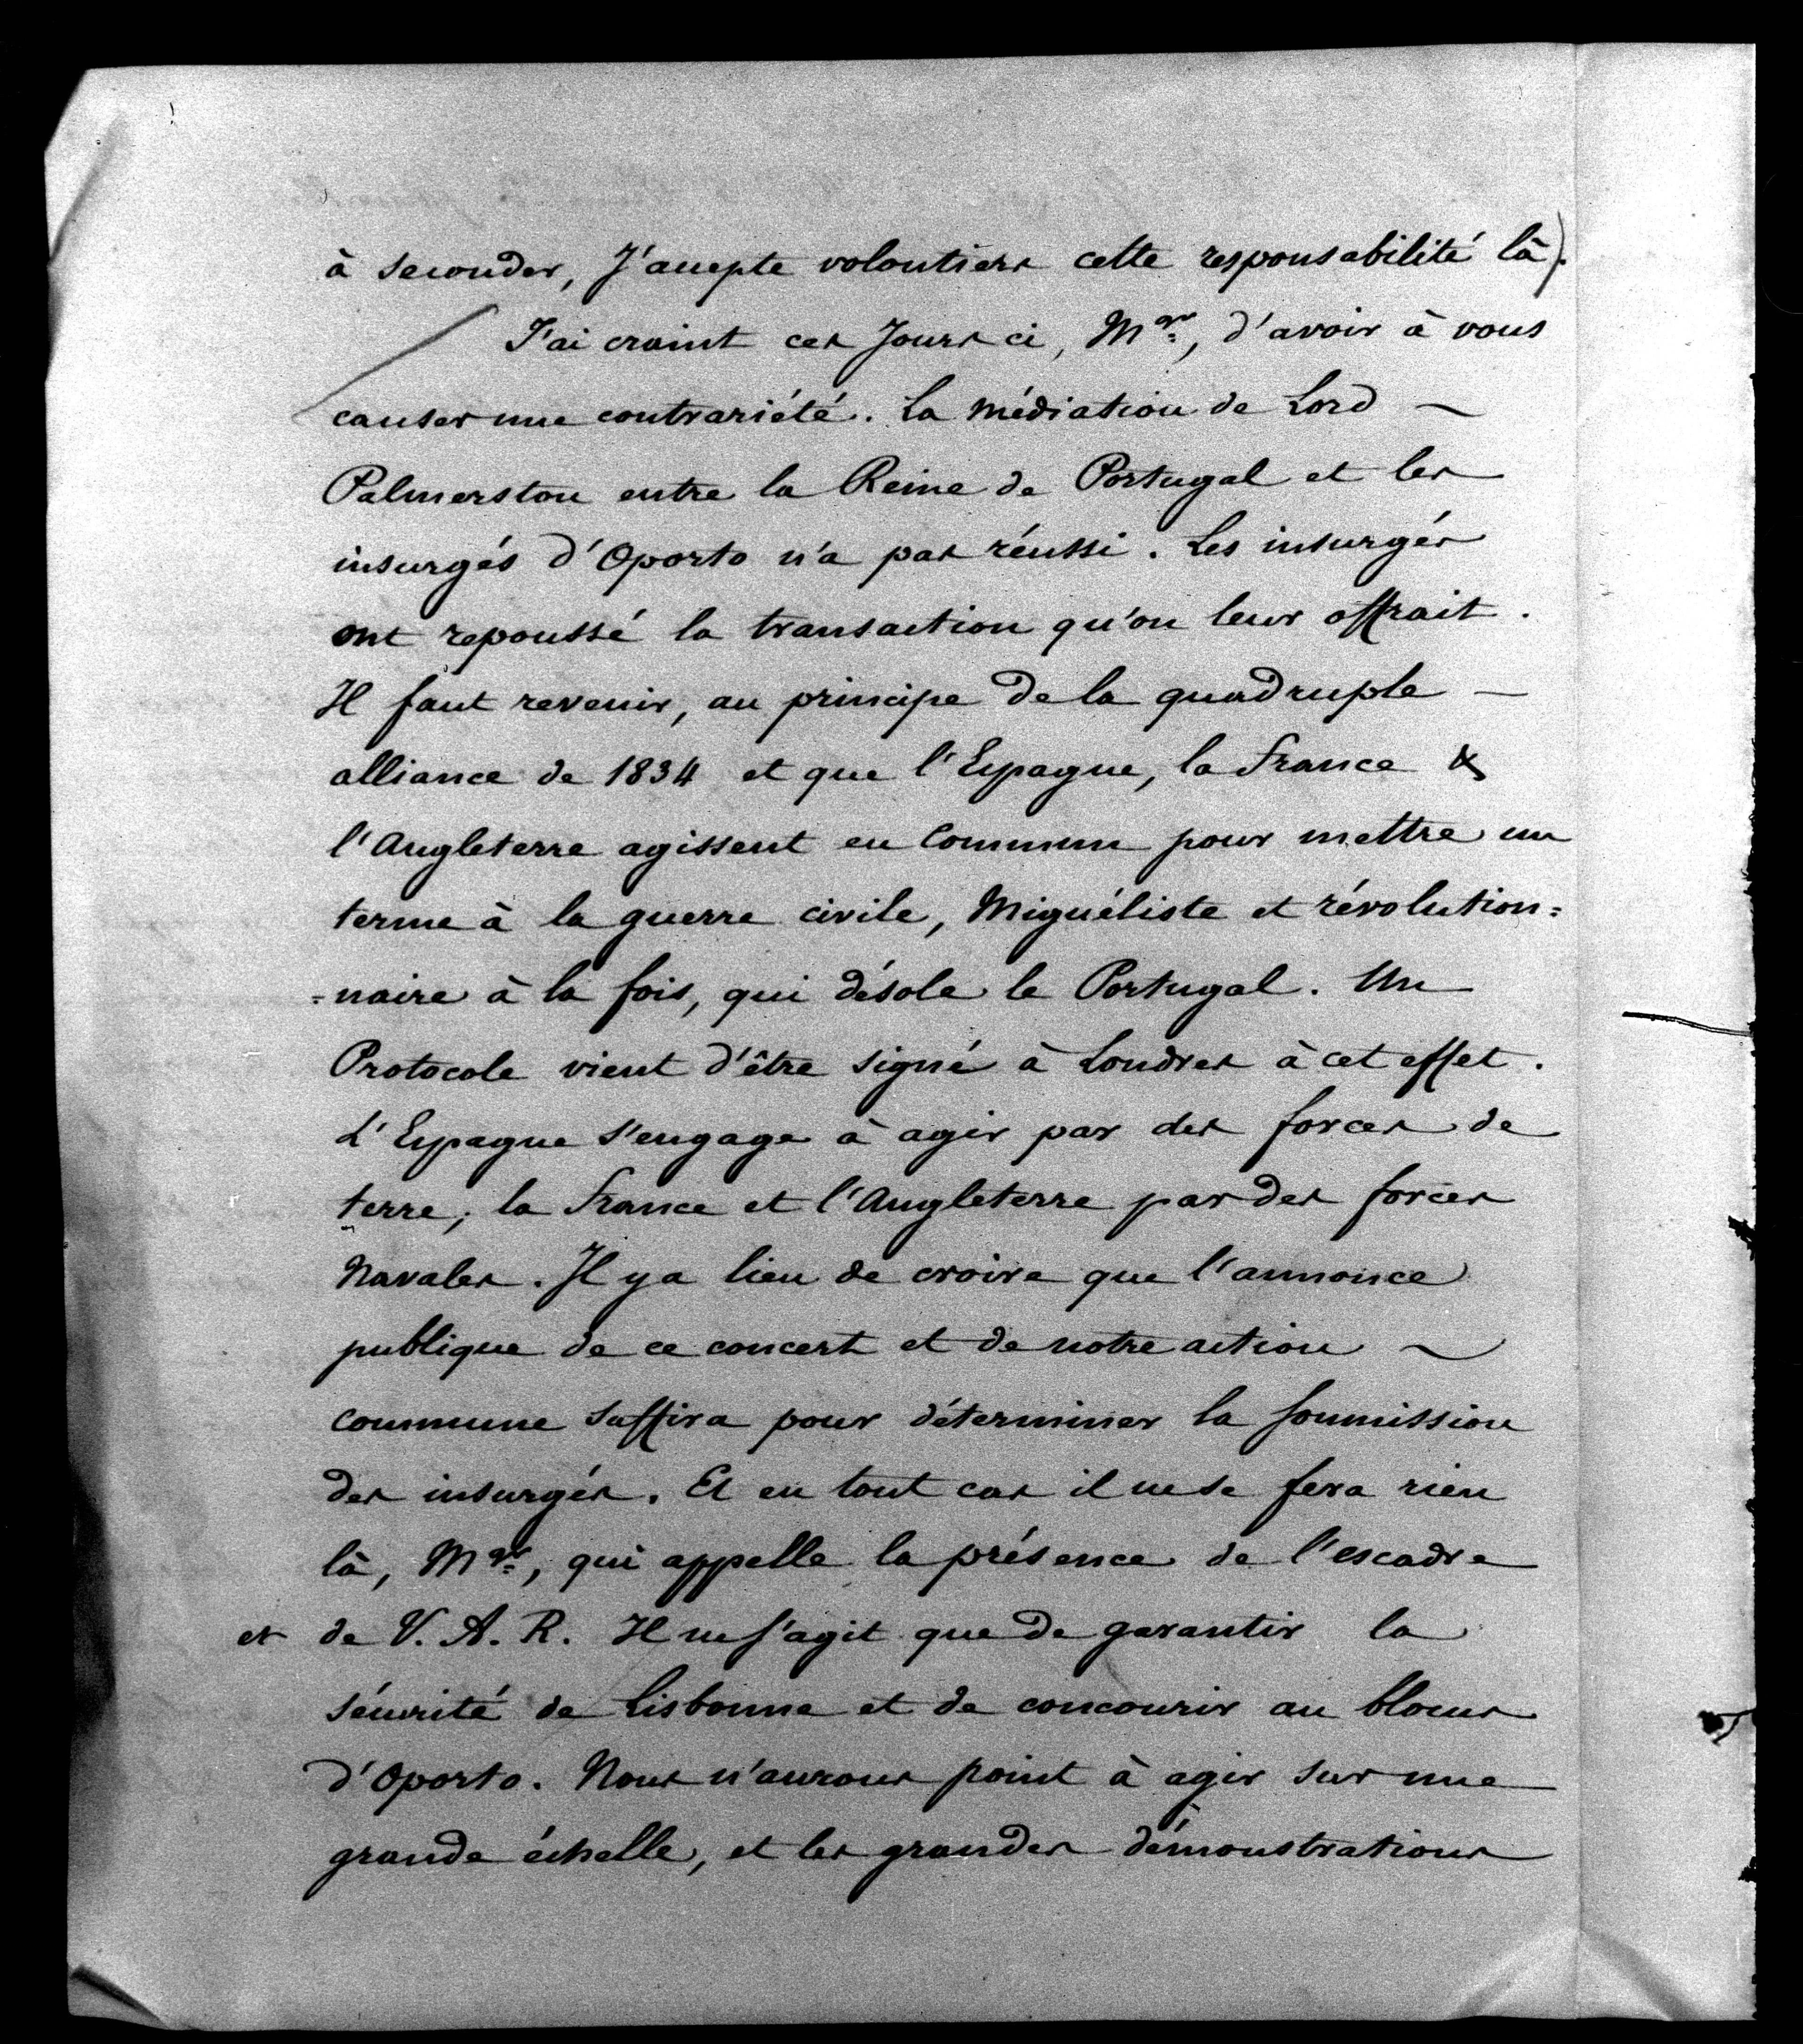 à seconder, J'accepte volontiers cette responsabilité là).
J'ai craint ces Jours ci, Mgr, d'avoir à vous
causer une contrariété. La médiation de Lord
Palmerston entre la Reine de Portugal et les
insurgés d'Oporto n'a pas réussi. Les insurgés
ont repoussé la transaction qu'on leur offrait.
Il faut revenir, au principe de la quadruple
alliance de 1834 et que l'Espagne, la France &
l'Angleterre agissent en Commun pour mettre un
terme à la guerre civile, Miguéliste et révolution=
=naire à la fois, qui désole le Portugal. Un
Protocole vient d'être signé à Londres à cet effet.
L'Espagne s'engage à agir par des forces de
terre; la France et l'Angleterre par des forces
Navales. Il y a lieu de croire que l'annonce
publique de ce concert et de notre action
commune suffira pour déterminer la soumission
des insurgés. Et en tout cas il ne se fera rien
là, Mgr, qui appelle la présence de l'escadre
et de V. A. R. Il ne s'agit que de garantir la
sécurité de Lisbonne et de concourir au blocus
d'Oporto. Nous n'aurons point à agir sur une
grande échelle, et les grandes démonstrations